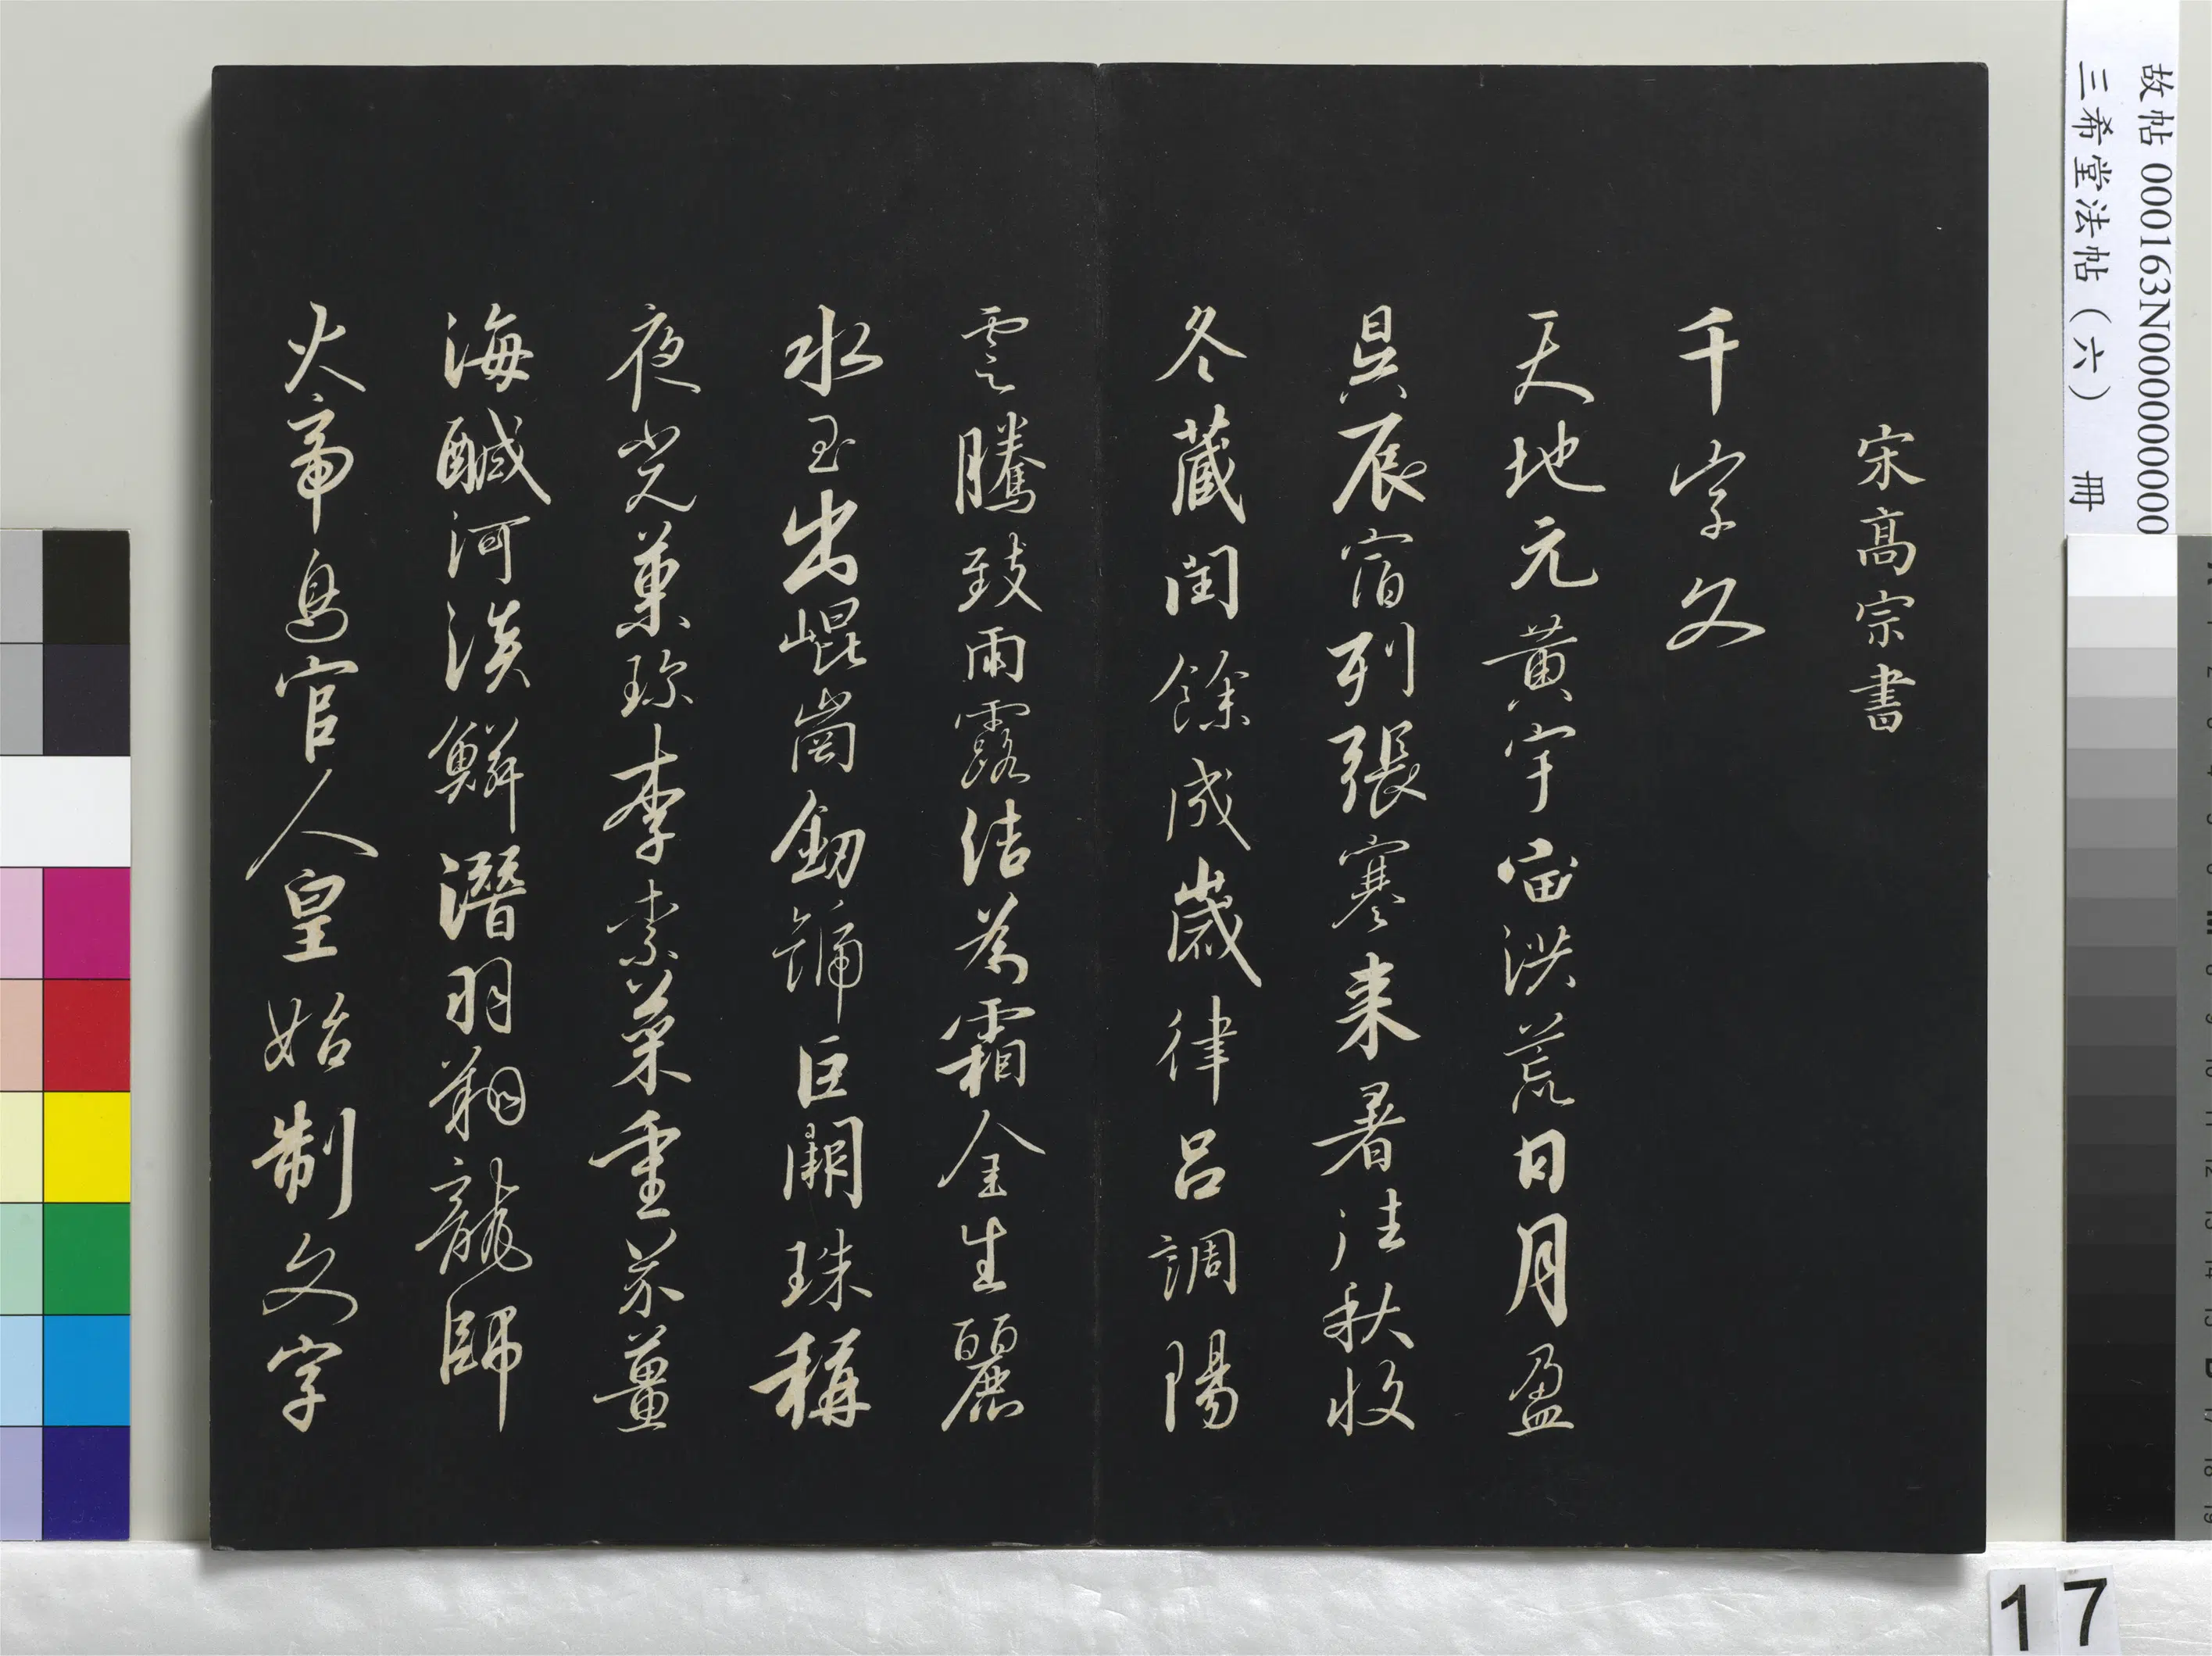 故帖 000163N000000000
三希堂法帖（六） 冊
宋髙宗書
千字文
天地元黃宇宙洪荒日月盈
昃辰宿列張寒来暑往秋收
冬藏閏餘成歲律呂調陽
雲騰致雨露結為霜金生麗
水玉出崐崗釼號巨闕珠稱
夜光菓珍李柰菜重芥薑
海醎河淡鱗潛羽翔龍師
火帝鳥官人皇始制文字
17